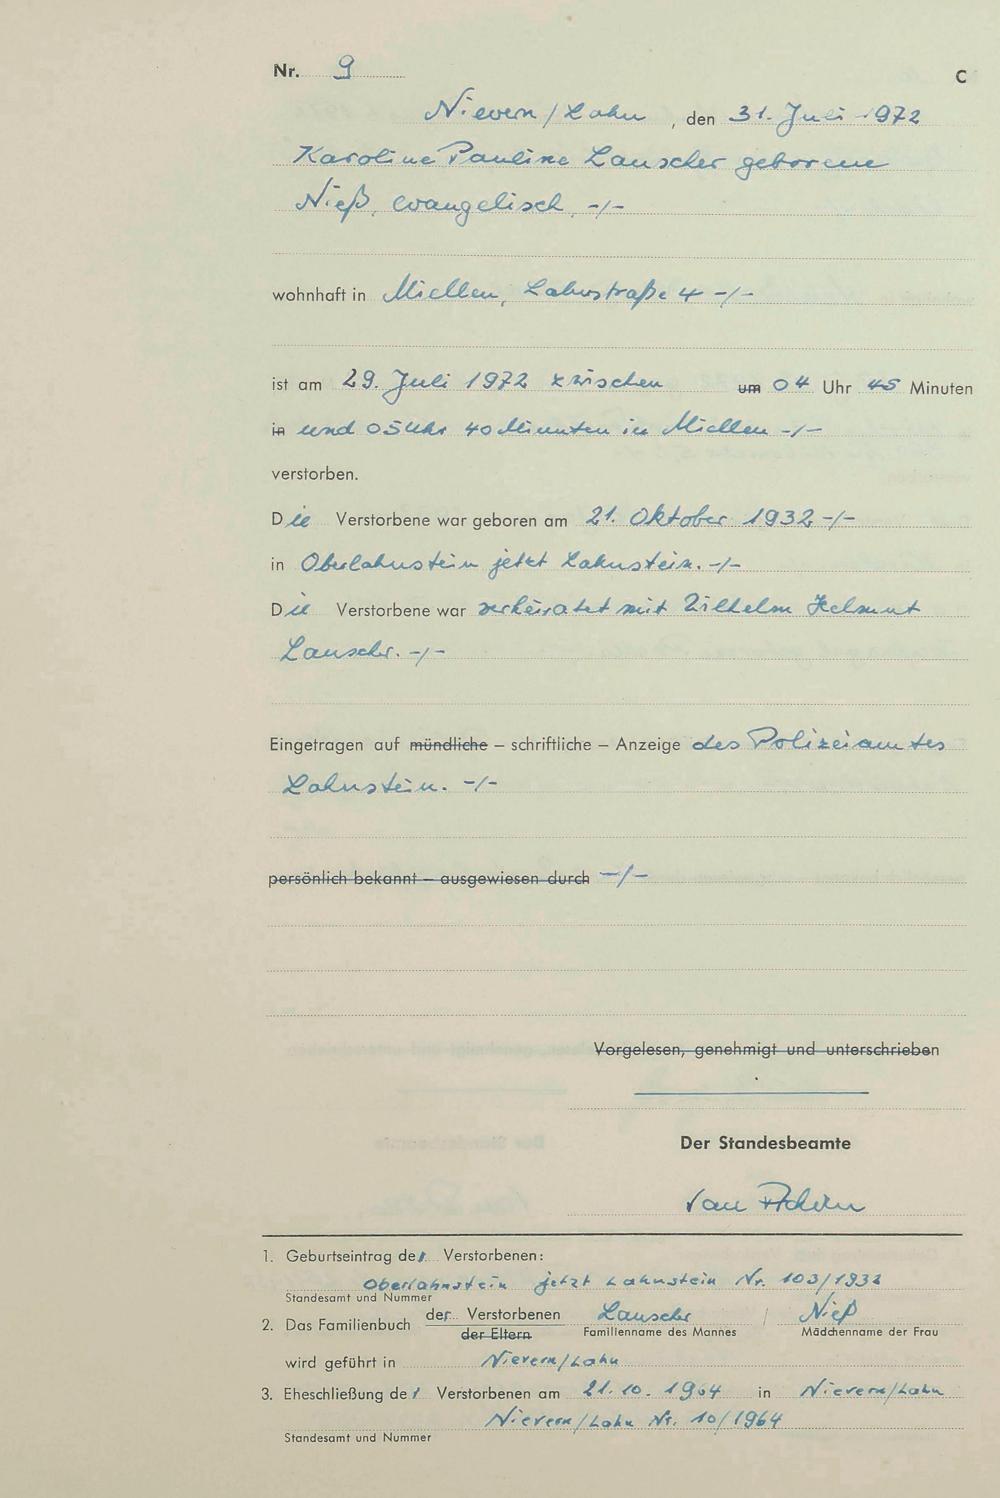 Nr. 9
C
Nievern/Lahn, den 31. Juli 1972
Karoline Pauline Lauscher geborene
Nieß, evangelisch, -/-
wohnhaft in Miellen, Lahnstraße 4 -/-
ist am 29. Juli 1972 zwischen um 04 Uhr 45 Minuten
in und 05 Uhr 40 Minuten in Miellen -/-
verstorben.
Die Verstorbene war geboren am 21. Oktober 1932 -/-
in Oberlahnstein jetzt Lahnstein. -/-
Die Verstorbene war verheiratet mit Wilhelm Helmut
Lauscher. -/-
Eingetragen auf mündliche – schriftliche – Anzeige des Polizeiamtes
Lahnstein. -/-
persönlich bekannt – ausgewiesen durch -/-
Vorgelesen, genehmigt und unterschrieben
Der Standesbeamte
1. Geburtseintrag der Verstorbenen:
Oberlahnstein jetzt Lahnstein Nr. 103/1932
Standesamt und Nummer
2. Das Familienbuch der Verstorbenen Lauscher / Nieß
der Eltern Familienname des Mannes Mädchenname der Frau
wird geführt in Nievern/Lahn
3. Eheschließung der Verstorbenen am 21.10.1964 in Nievern/Lahn
Nievern/Lahn Nr. 10/1964
Standesamt und Nummer